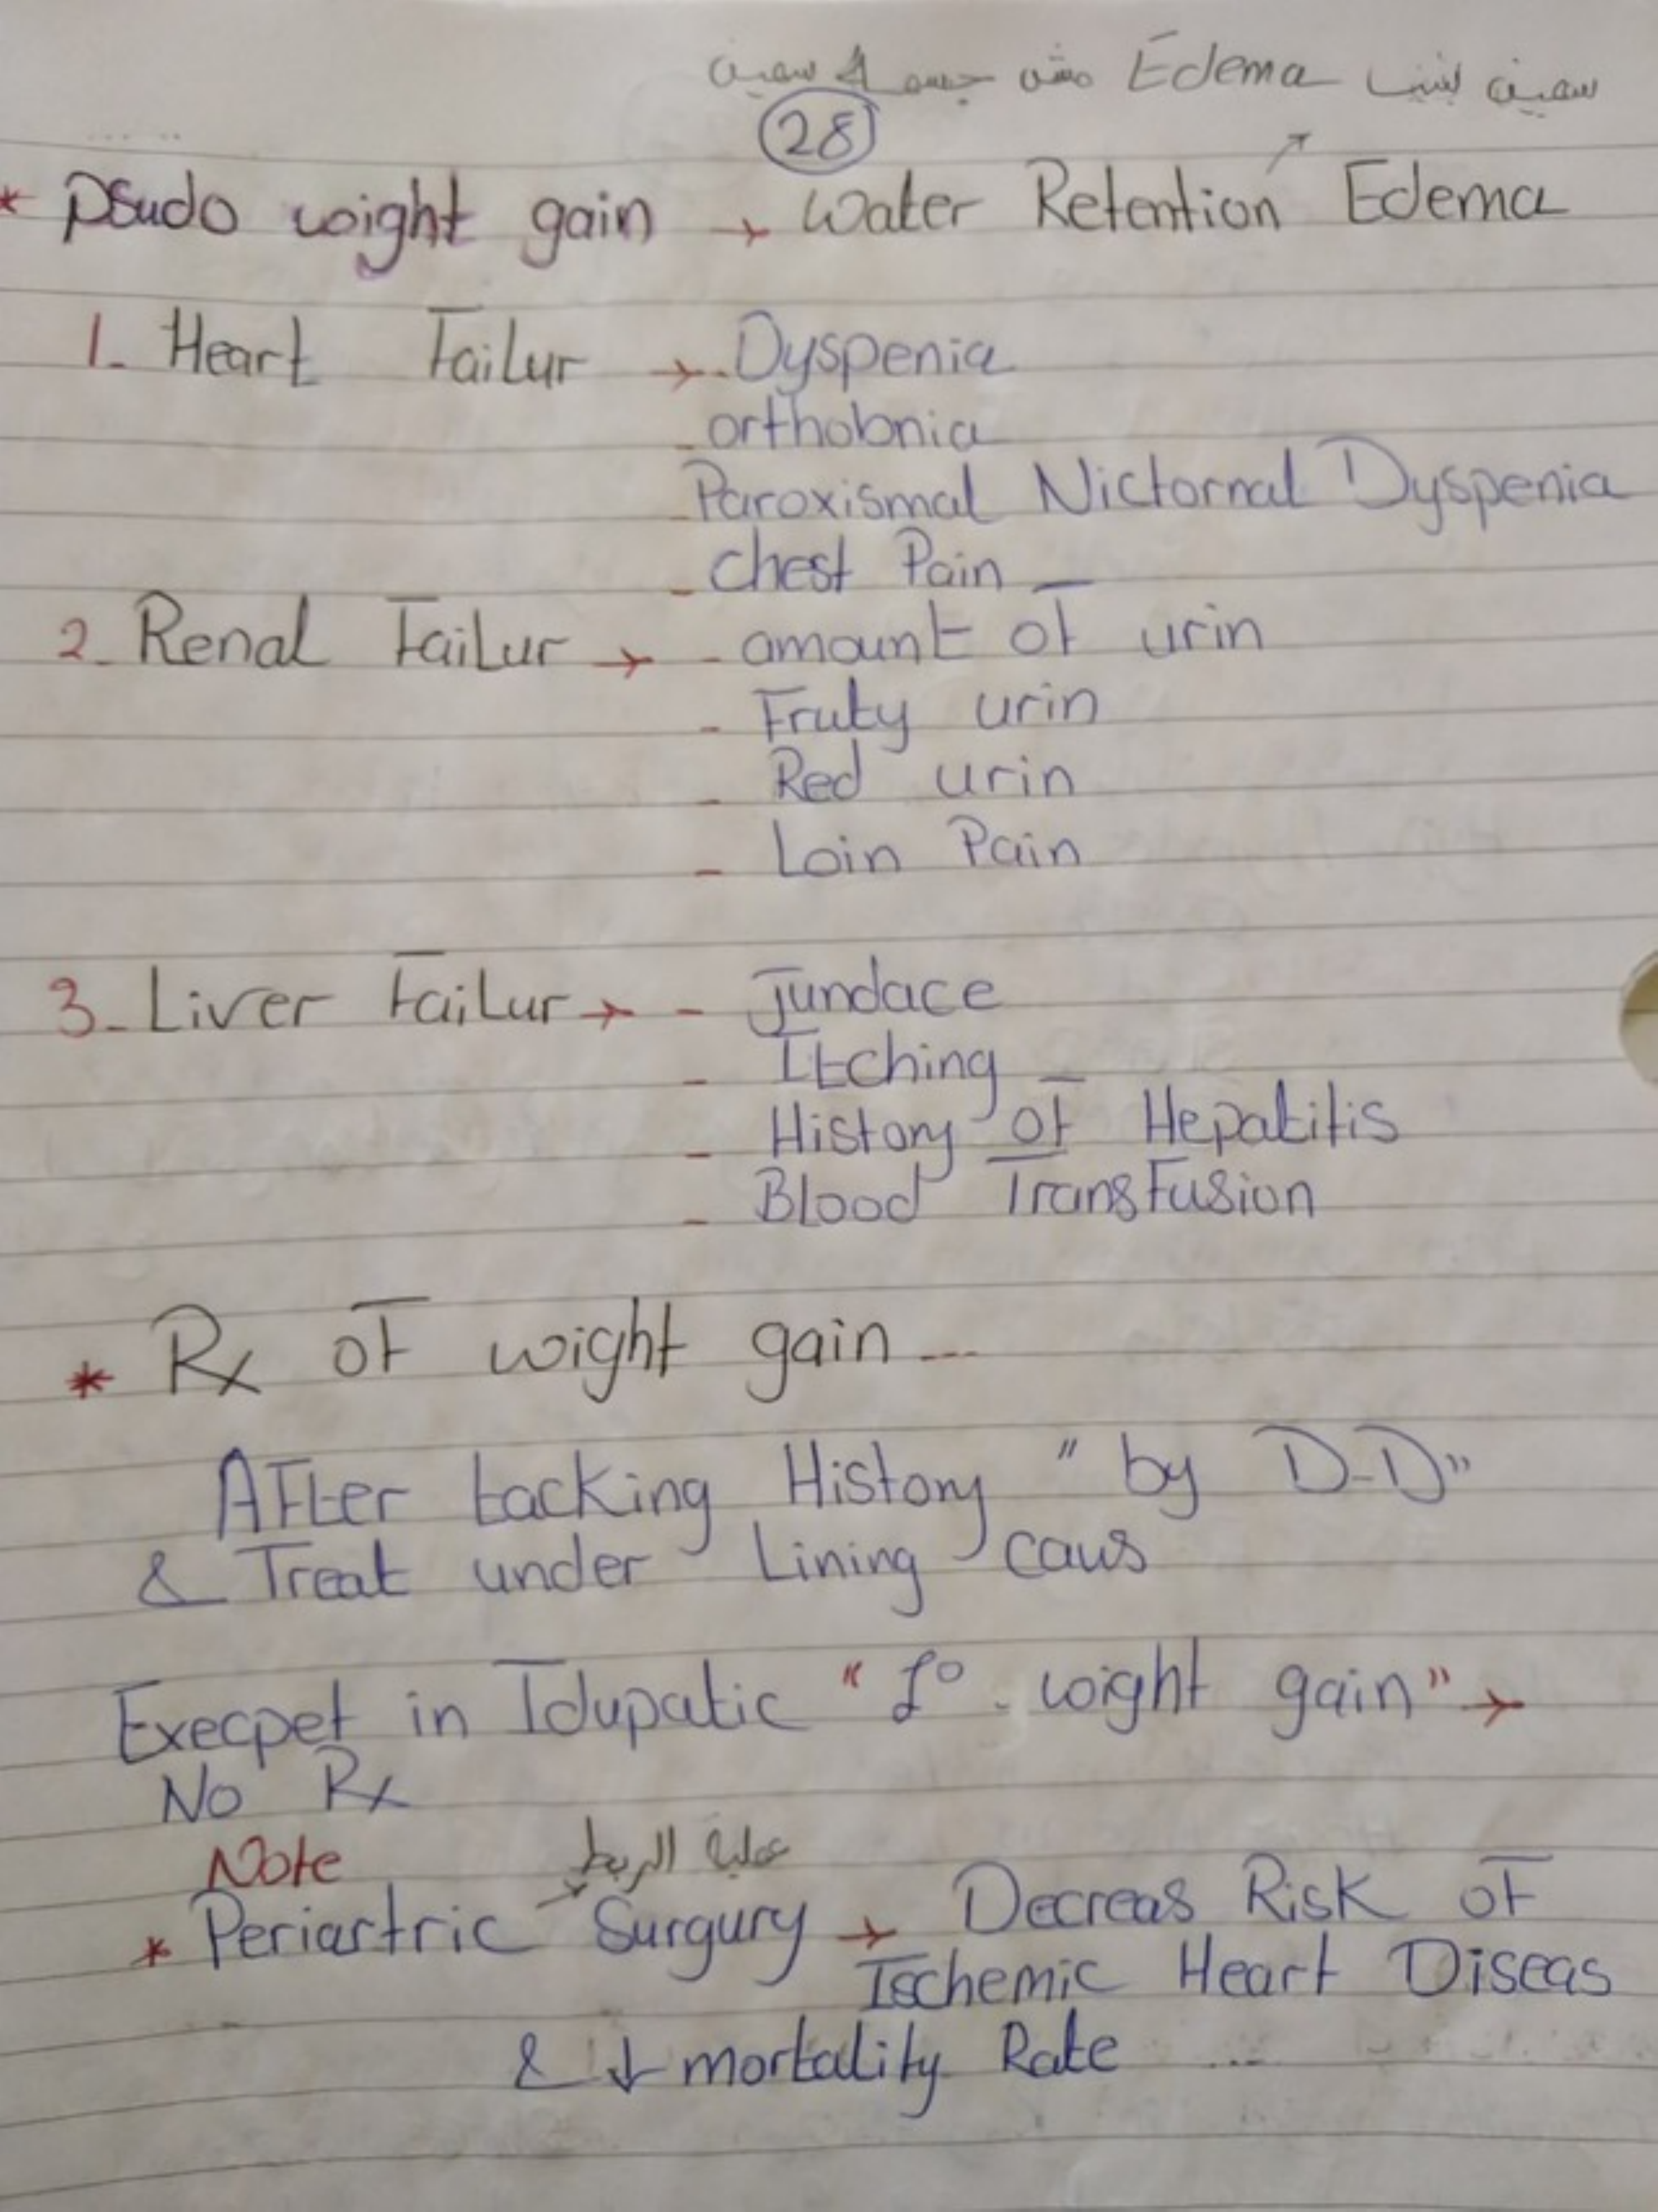 سمين بسبب Edema مش جسمه سمين
28
* Psudo wight gain → Water Retention Edema
1- Heart Failur → - Dyspenia
- orthobnia
- Paroxismal Nictornal Dyspenia
- chest Pain
2- Renal Failur → - amount of urin
- Fruty urin
- Red urin
- Loin Pain
3- Liver Failur → - Jundace
- Itching
- History of Hepatitis
- Blood Transfusion
* Rx of wight gain ...
After tacking History "by D-D"
& Treat under Lining caus
Execpet in Idupatic "1° wight gain" →
No Rx
Note
عملية الربط
* Periartric Surgury → Decreas Risk of
Ischemic Heart Diseas
& ↓ mortality Rate